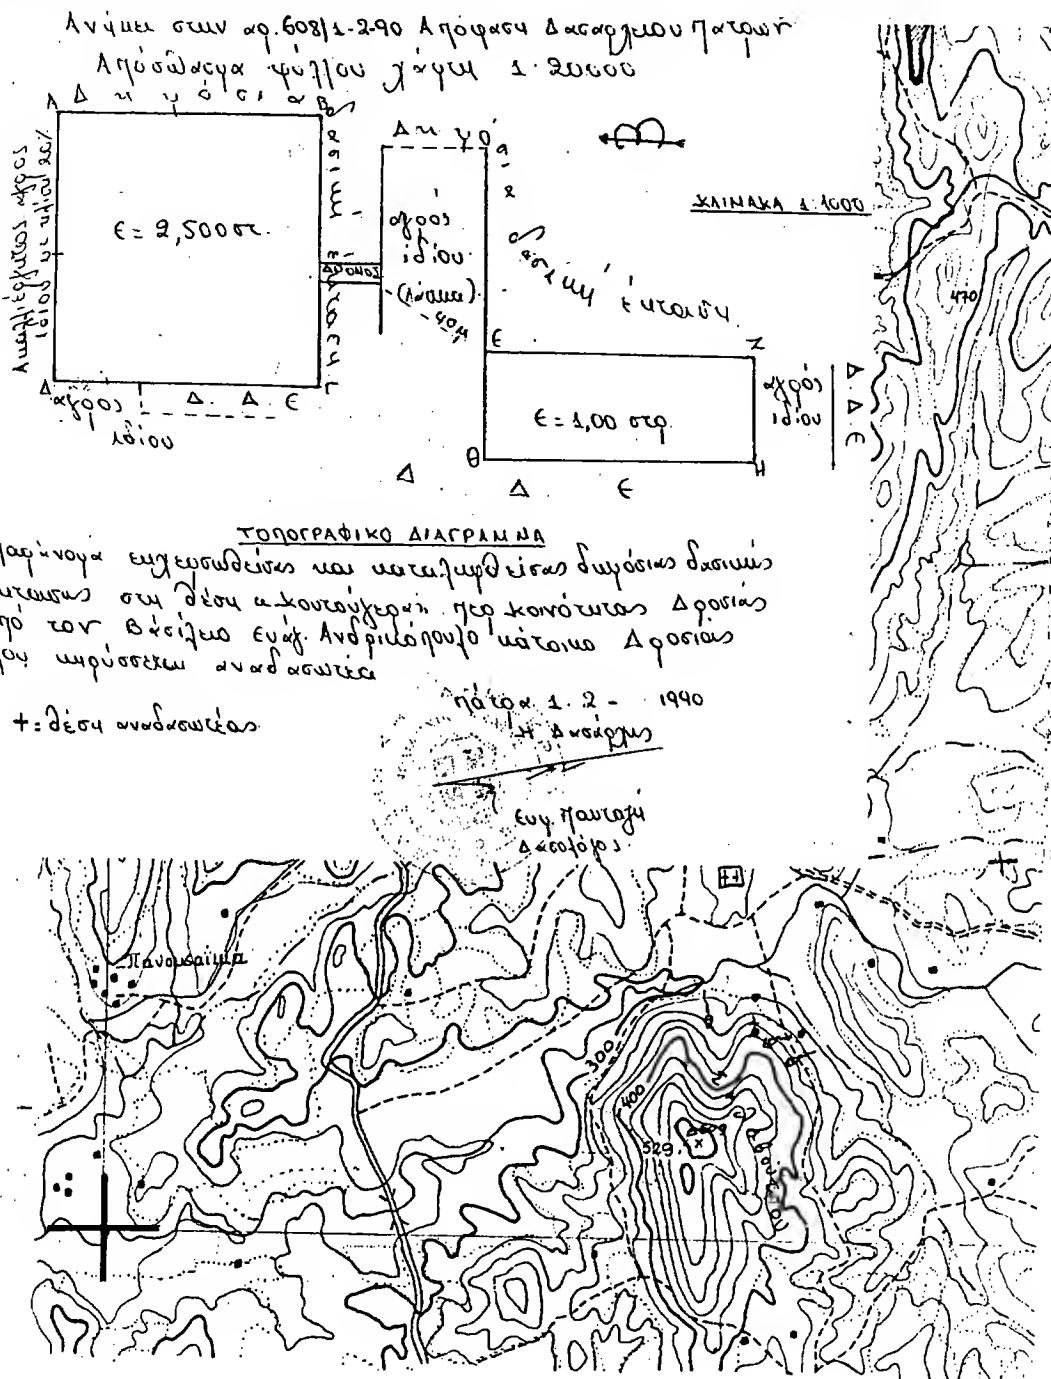 Ανήκει στην αρ. 608/1-2-90 Απόφαση Δασαρχείου Πατρών
Απόσπασμα φύλλου χάρτη 1:20000
Α Δημόσια Β
Δασική έκταση
Ακαλλιέργητος αγρός
ιδίου με κλίση 20%
Ε = 2,500 στ.
ΔΡΟΜΟΣ
Δ Γ
αγρός
ιδίου
Δ. Δ. Ε
Δημόσια
αγρός
ιδίου
40μ
δασική έκταση
ΚΛΙΜΑΚΑ 1:1000
Ε Ζ
Ε = 1,00 στρ.
Θ Η
αγρός
ιδίου
Δ. Δ. Ε
Δ Δ. Ε
ΤΟΠΟΓΡΑΦΙΚΟ ΔΙΑΓΡΑΜΜΑ
εκχερσωθείσας και καταληφθείσας δημόσιας δασικής
στη θέση "Κουτούγερα" περ. Κοινότητας Δροσιάς
τον Βασίλειο Ευάγ. Ανδρικόπουλο κάτοικο Δροσιάς
κηρύσσεται αναδασωτέα
+: θέση αναδασωτέας
Πάτρα 1.2-1990
Η Δασάρχης
Ευγ. Πανταζή
Δασολόγος
470
Πανουσαίικα
300
400
529